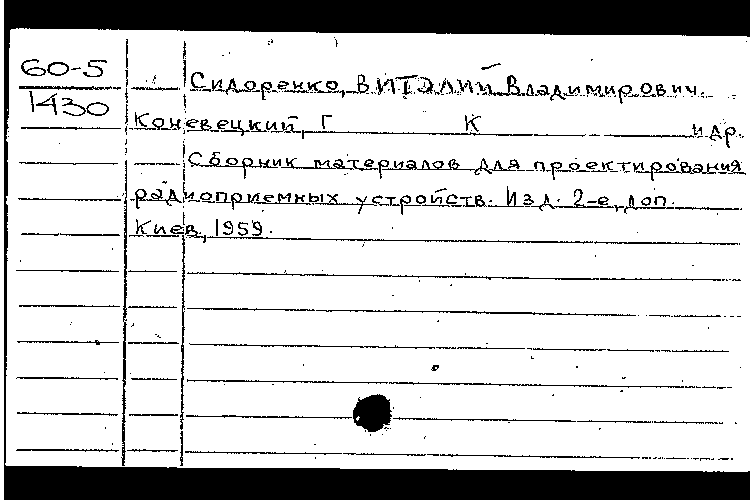 60-5
1430
Сидоренко, ВИТАЛИЙ Владимирович.
Коневецкий, Г К и др.
Сборник материалов для проектирования
радиоприемных устройств. Изд. 2-е, доп.
Киев, 1959.